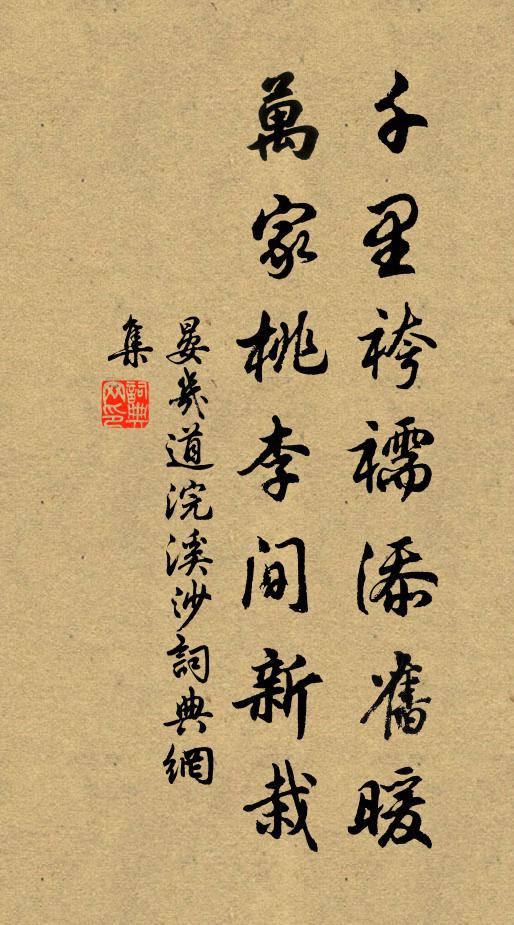 千里袴襦添舊暖
萬家桃李間新栽
晏幾道浣溪沙詞典網
集
詞典網印